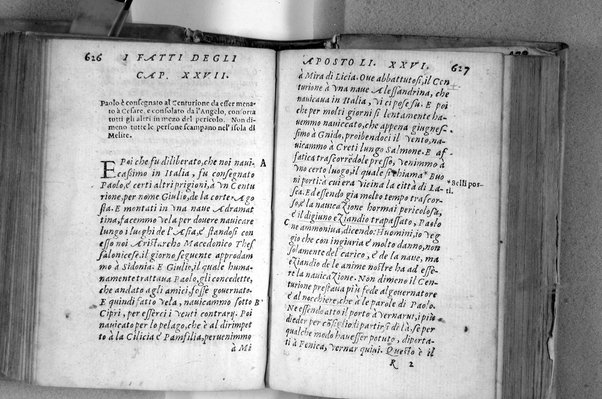 626 I FATTI DEGLI
CAP. XXVII.
Paolo è consegnato al Centurione da esser mena
to à Cesare, e consolato da l'Angelo, conforta
tutti gli altri in mezo del pericolo. Non di
meno tutte le persone scampano nel'isola di
Melite.
E Poi che fu diliberato, che noi navi- A
cassimo in Italia, fu consegnato
Paolo, & certi altri prigioni, à un Centu
rione, per nome Giulio, de la corte Ago
sta. E montati in una nave Adramit
tina, facemmo vela per dovere navicare
lungo i luoghi de l'Asia, & standosi con
esso noi Aristarcho Macedonico Thes
salonicese. il giorno seguente approdam
mo à Sidonia. E Giulio, il qual e huma-
namente trattava Paolo, gli concedette,
che andato agli amici, fosse governato.
E quindi fato vela, navicammo sotto B
Cipri, per esserci i venti contrarij. Poi
navicato per lo pelago, che è al dirimpet
to à la Cilicia & Pamfilia, pervenimmo
à Mi
APOSTOLI. XXVI. 627
à Mira di Licia. Ove abbattutosi, il Cen
turione à una nave Alessandrina, che
navicava in Italia, vi ci pose su. E poi
che per molti giorni si lentamente ha-
vemmo navicato, che appena giugnes-
simo à Gnido, proibendoci il vento, na-
vicammo à Creti lungo Salmone. E af-
fatica trascorredole presso, venimmo à
uno certo luogo, il quale si chiama * Buo
ni porti: à cui era vicina la città di La-
sea. Ed essendo gia molto tempo trascor-
so, & la navicazione hormai pericolosa,
& il digiuno eziandio trapassato, Paolo
C ne ammoniva, dicendo: Huomini, io veg
gio che con ingiuria & molto danno, non
solamente del carico, & de la nave, ma
eziandio de le anime nostre ha ad esse-
re la navicazione. Non dimeno il Cen
turione prestava più fede al governatore
& al nocchiere, che à le parole di Paolo.
Ne essendo atto il porto à vernarvi, i piu
dieder per cosiglio: si partirsi di là, se per
qualche modo havesser potuto, diporta-
ti à Fenica, vernar quivi. Questo è il
R 2
* Belli por
ti.